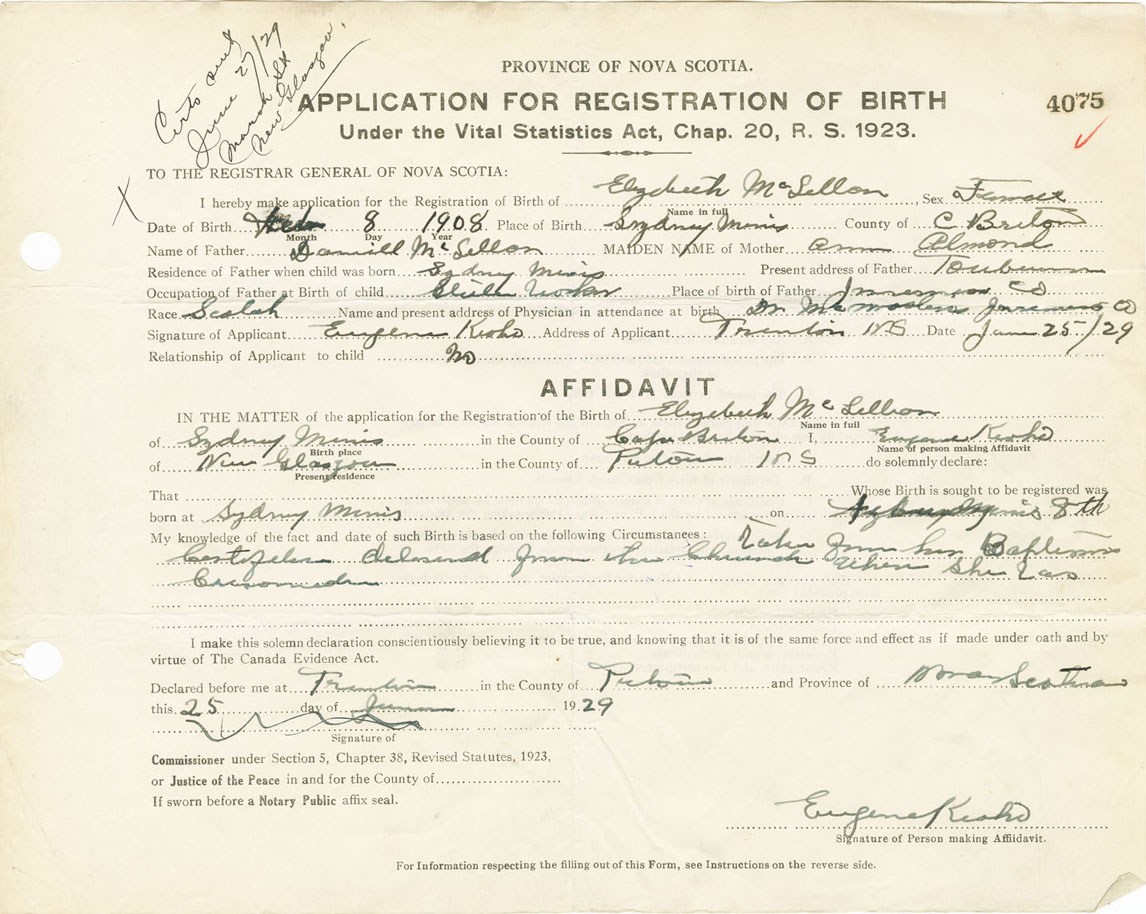 Certs sent
June 27/29
Marsh St
New Glasgow.
PROVINCE OF NOVA SCOTIA.
APPLICATION FOR REGISTRATION OF BIRTH
4075
Under the Vital Statistics Act, Chap. 20, R. S. 1923.
TO THE REGISTRAR GENERAL OF NOVA SCOTIA:
X
I hereby make application for the Registration of Birth of Elyzbeth McLellon, Sex Female
Name in full
Date of Birth 8 1908 Place of Birth Sydney Minis County of C Briton
Month Day Year
Name of Father Daniell McLellon MAIDEN NAME of Mother ann Almond
Residence of Father when child was born Sydney Minis Present address of Father
Occupation of Father at Birth of child Place of birth of Father CO
Race Scotch Name and present address of Physician in attendance at birth Dr CO
Signature of Applicant Eugene Address of Applicant Trenton NS Date June 25/29
Relationship of Applicant to child No
AFFIDAVIT
IN THE MATTER of the application for the Registration of the Birth of Elyzbeth McLellion
Name in full
of Sydney Minis in the County of Cape Breton I, Eugene
Birth place Name of person making Affidavit
of New Glasgow in the County of Pictou NS do solemnly declare:
Present residence
That Whose Birth is sought to be registered was
born at Sydney Minis on 8th
My knowledge of the fact and date of such Birth is based on the following Circumstances: Taken from her Baptism
from the Church When She Was
I make this solemn declaration conscientiously believing it to be true, and knowing that it is of the same force and effect as if made under oath and by
virtue of The Canada Evidence Act.
Declared before me at Trenton in the County of Pictou and Province of Nova Scotia
this 25 day of June 1929
Signature of
Commissioner under Section 5, Chapter 38, Revised Statutes, 1923,
or Justice of the Peace in and for the County of
If sworn before a Notary Public affix seal.
Eugene
Signature of Person making Affidavit.
For Information respecting the filling out of this Form, see Instructions on the reverse side.